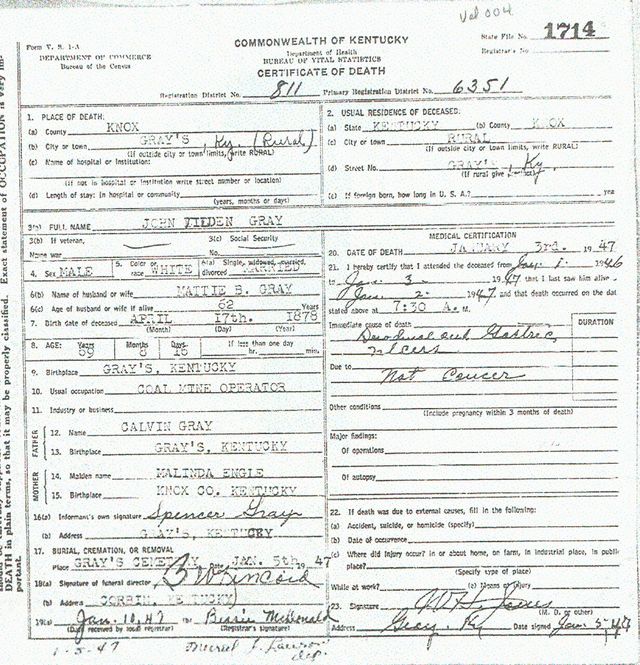 Vol 004
Form V. S. 1-A
DEPARTMENT OF COMMERCE
Bureau of the Census
COMMONWEALTH OF KENTUCKY
Department of Health
BUREAU OF VITAL STATISTICS
CERTIFICATE OF DEATH
State File No. 1714
Registrar's No.
Registration District No. 811 Primary Registration District No. 6351
1. PLACE OF DEATH:
(a) County KNOX
(b) City or town GRAY'S, Ky. (Rural)
(If outside city or town limits, write RURAL)
(c) Name of hospital or Institution:
(If not in hospital or Institution write street number or location)
(d) Length of stay: In hospital or community
(years, months or days)
2. USUAL RESIDENCE OF DECEASED:
(a) State KENTUCKY (b) County KNOX
(c) City or town RURAL
(If outside city or town limits, write RURAL)
(d) Street No. GRAY'S, Ky.
(If rural give
(e) If foreign born, how long in U. S. A.? yea
3(a) FULL NAME JOHN TILDEN GRAY
3(b) If veteran, 3(c) Social Security
Name war No.
4. Sex MALE 5. Color or race WHITE 6(a) Single, widowed, married, divorced MARRIED
6(b) Name of husband or wife MATTIE B. GRAY
6(c) Age of husband or wife if alive 62 Years
7. Birth date of deceased APRIL 17th. 1878
(Month) (Day) (Year)
8. AGE: Years Months Days If less than one day
8 hr. min.
9. Birthplace GRAY'S, KENTUCKY
10. Usual occupation COAL MINE OPERATOR
11. Industry or business
FATHER
12. Name CALVIN GRAY
13. Birthplace GRAY'S, KENTUCKY
MOTHER
14. Maiden name MALINDA ENGLE
15. Birthplace KNOX CO. KENTUCKY
16(a) Informant's own signature Spencer Gray
(b) Address GRAY'S, KENTUCKY
17. BURIAL, CREMATION, OR REMOVAL
Place GRAY'S CEMETERY Date JAN. 5th 1947
18(a) Signature of funeral director
(b) Address CORBIN, KENTUCKY
19(a) Jan. 10, 47 (b) Bessie McDonald
(Date received by local registrar) (Registrar's signature)
1-5-47
MEDICAL CERTIFICATION
20. DATE OF DEATH JANUARY 3rd. 1947
21. I hereby certify that I attended the deceased from Jan. 1. 1946
to Jan. 3- 1947 that I last saw him alive
Jan. 2. 1947 and that death occurred on the dat
stated above at 7:30 A. M.
Immediate cause of death Duodenal and Gastric
ulcers
DURATION
Due to
Not Cancer
Other conditions
(Include pregnancy within 3 months of death)
Major findings:
Of operations
Of autopsy
22. If death was due to external causes, fill in the following:
(a) Accident, suicide, or homicide (specify)
(b) Date of occurrence
(c) Where did injury occur? In or about home, on farm, in industrial place, in public
place?
(Specify type of place)
While at work? (e) Means of Injury
23. Signature
(M. D. or other)
Address Gray, Ky Date signed Jan 5-47
Exact statement of OCCUPATION is very im-
DEATH in plain terms, so that it may be properly classified.
portant.